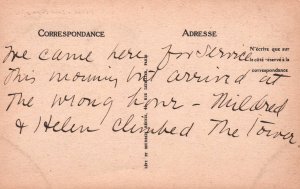 CORRESPONDANCE
ADRESSE
N'écrire que sur
le côté réservé à la
correspondance
We came here for service
This morning but arrived at
The wrong hour – Mildred
& Helen climbed The tower.